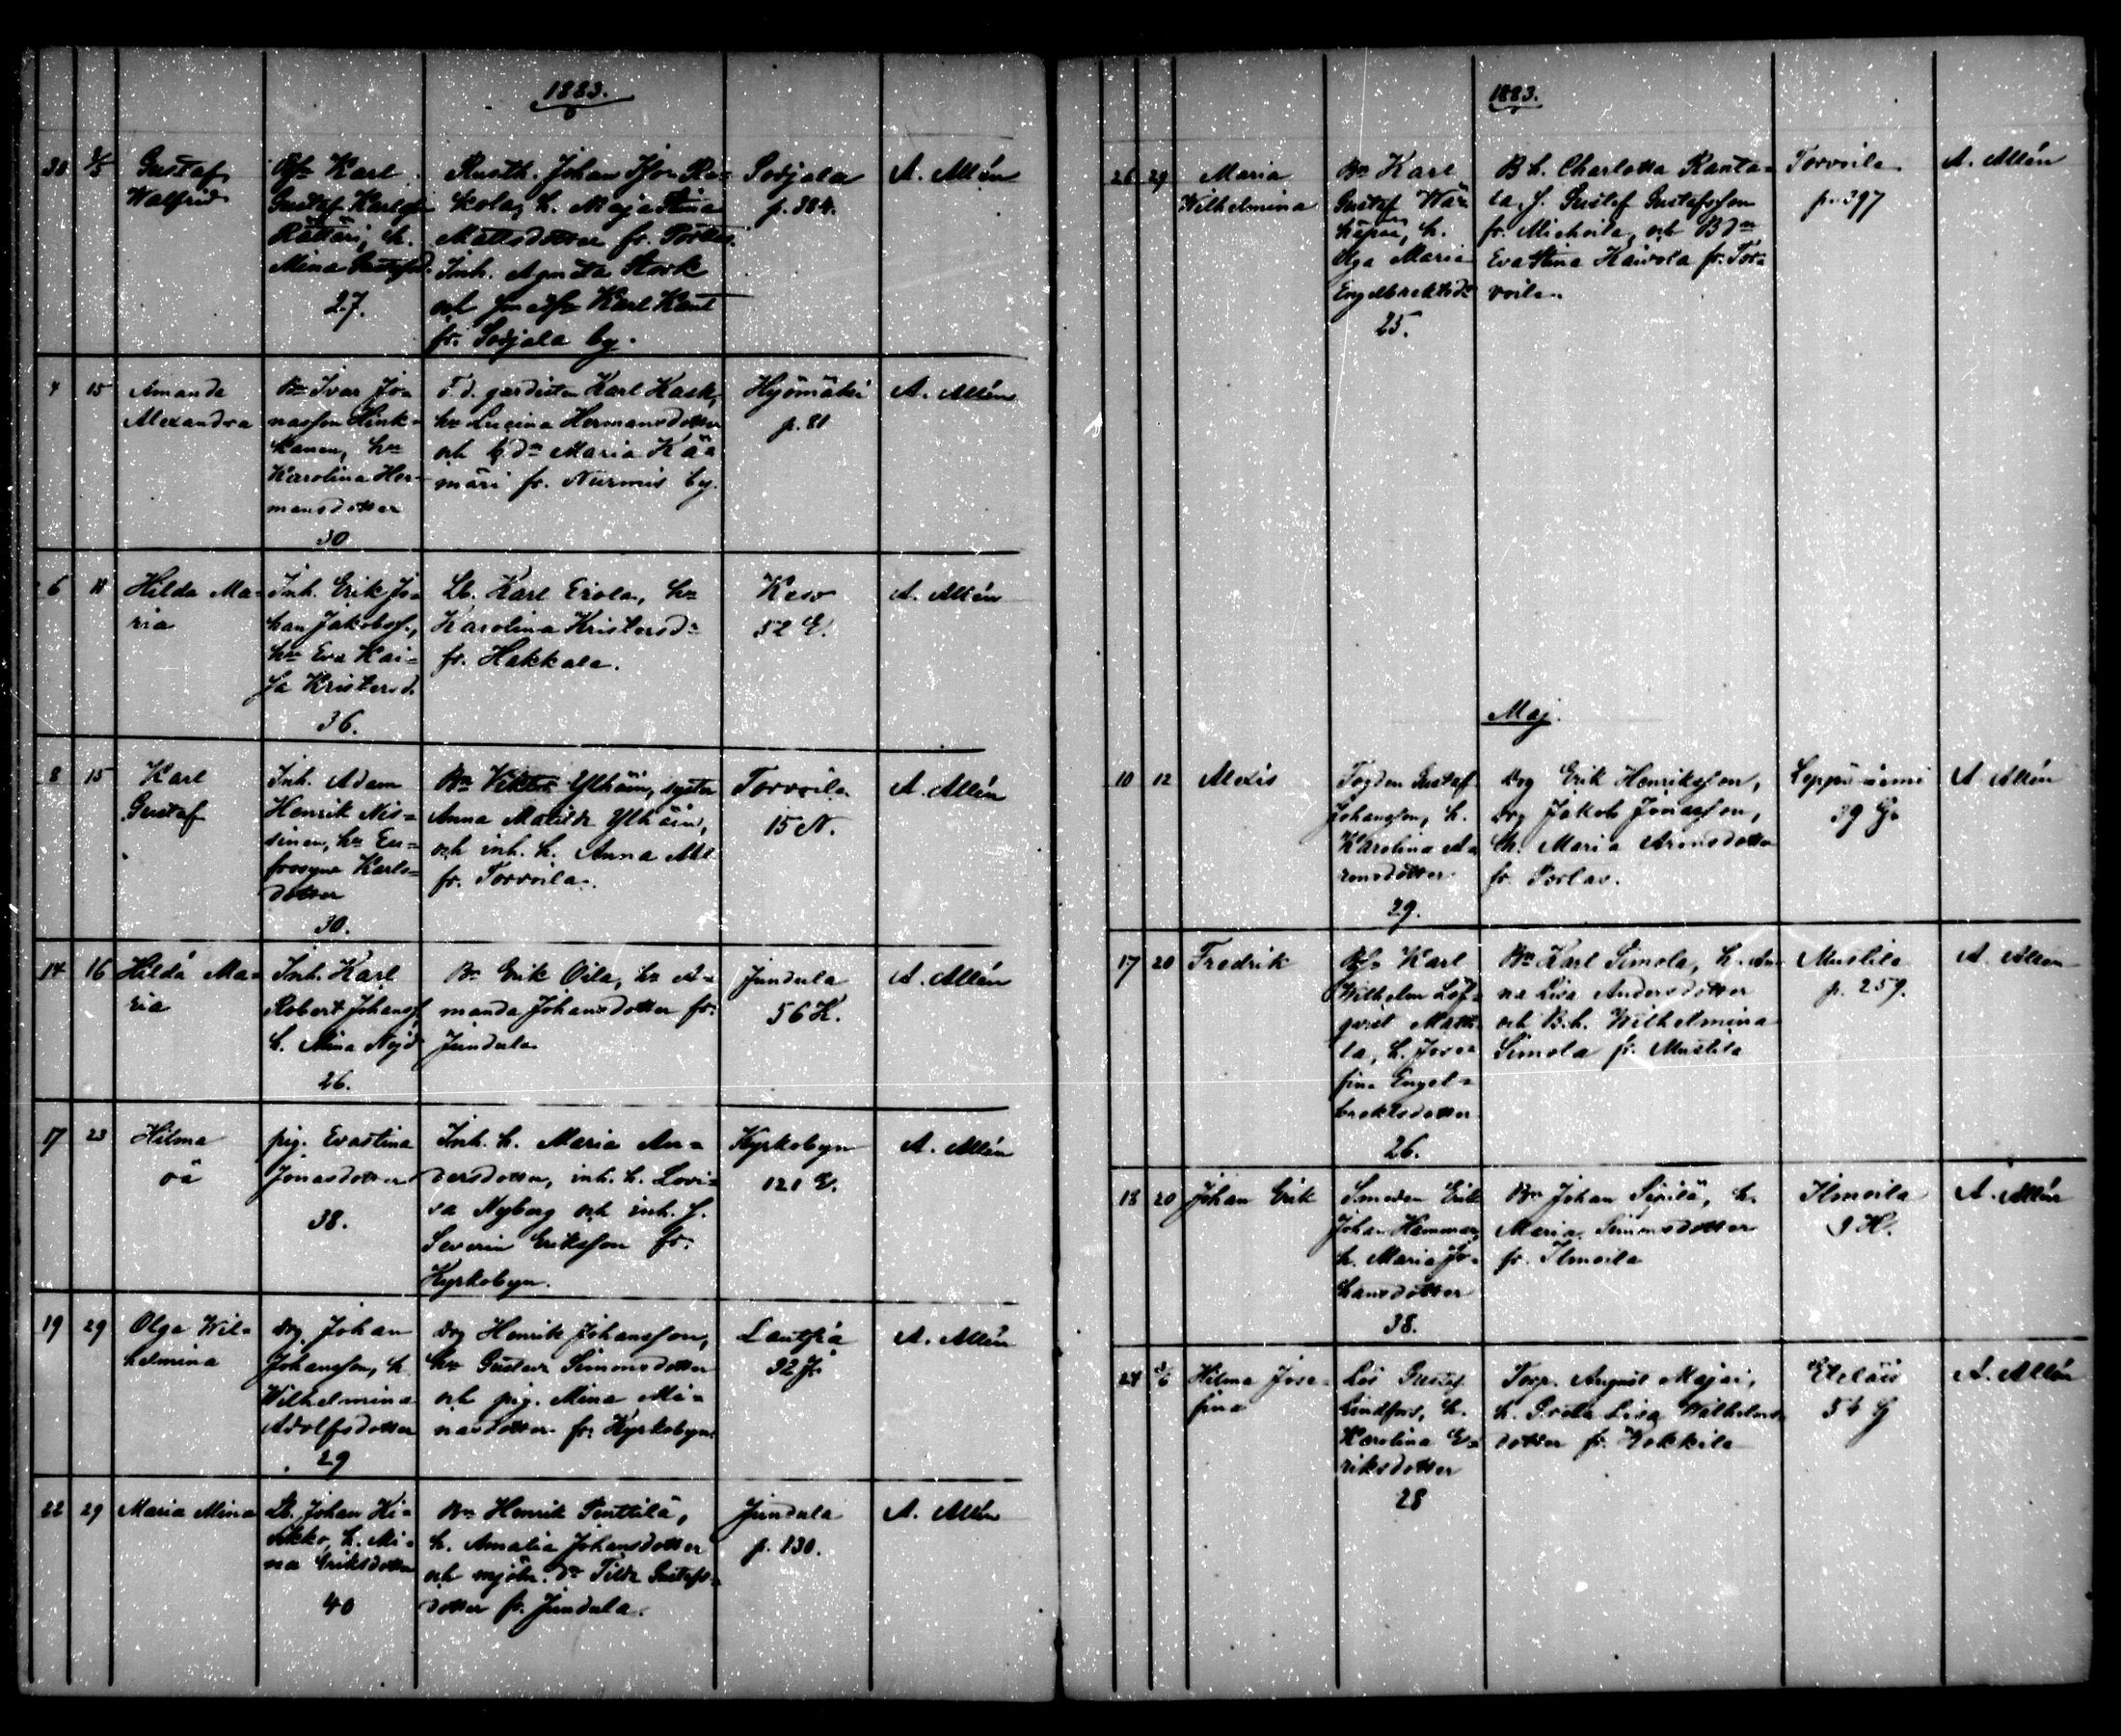 1883.
30 Gustaf
Walfrid
Karl
Gustaf Karlss.
Rätäri, h.
Mina Gustafsd.
27.
Rusth. Johan
skola, h. Maja Stina
Mattsdotter fr.
Inh. Agneta Stork
och Karl Kant
fr. Sodjala by.
Sodjala
p. 384.
A. Allén
4 15 Amanda
Alexandra
Bn Ivar Jo-
nasson Hink-
kanen, hn
Karolina Her-
mansdotter
30
F.d. gardisten Karl Kask,
hn Lucina Hermansdotter
och Maria Kää-
märi fr. Nurmis by.
Hyömäki
p. 81
A. Allén
6 18 Hilda Ma-
ria
Inh. Erik Jo-
han Jakobss.,
hn Eva Kai-
sa Kristersd.
36.
Lb. Karl Erola, hn
Karolina Kristersd:r
fr. Hakkala.
52 E.
A. Allén
8 15 Karl
Gustaf
Inh. Adam
Henrik Nis-
sinen, hn Eu-
frosyne Karls-
dotter
30.
Bn Viktor Ylhäin, syster
Anna Matilda Ylhäin,
och inh. h. Anna
fr. Torvoila.
Torvoila
15 N.
A. Allén
14 16 Hilda Ma-
ria
Inh. Karl
Robert Johanss.
h. Mina Nöjd
26.
Bn Erik Oila, hn A-
manda Johansdotter fr.
Jundula
Jundula
56 K.
A. Allén
17 23 Hilma
oä
pig. Evastina
Jonasdotter
38.
Inh. h. Maria An-
dersdotter, inh. h. Lovi-
sa Nyberg och inh. J.
Severin Eriksson fr.
Kyrkobyn.
Kyrkobyn
121 E.
A. Allén
19 29 Olga Wil-
helmina
drg Johan
Johansson, h
Wilhelmina
Adolfsdotter
29
drg Henrik Johansson,
hn Gustava Simonsdotter
och pig. Mina Mi-
nasdotter fr. Kyrkobyn.
Lautsia
32 J.
A. Allén
22 29 Maria Mina
Lb. Johan Hi-
h. Mi-
na Eriksdotter
40
Bn Henrik Penttilä,
h. Amalia Johansdotter
och mjöln. dr Tilda Gustafs-
dotter fr. Jundula.
Jundula
p. 130.
A. Allén
1883.
26 29 Maria
Wilhelmina
Bn Karl
Gustaf Wä-
häpää, h.
Olga Maria
Engelbrektsdr
25.
B.h. Charlotta Ranta-
la, J. Gustaf Gustafsson
fr. Mickoila, och Bdn
Eva Stina Kaivola fr. Tor-
voila.
Torvoila
p. 397
A. Allén
Maj.
10 12 Alexis
Fogden Gustaf
Johansson, h.
Karolina Aa-
ronsdotter
29.
Drg Erik Henriksson,
drg Jakob Jonasson,
h. Maria Aronsdotter
fr. Porlas.
Leppäniemi
39 G.
A. Allén
17 20 Fredrik
Karl
Wilhelm Löf-
qvist
la, h. Jose-
fina Engel-
brektsdotter
26.
Bn Karl Simola, h. An-
na Lisa Andersdotter
och B.h. Wilhelmina
Simola fr. Mustila
Mustila
p. 259.
A. Allén
18 20 Johan Erik
Smeden Erik
Johan Hammar,
h. Maria Jo-
hansdotter
38.
Bn Johan Sipilä, h.
Maria Simonsdotter
fr. Ilmoila
Ilmoila
9 H.
A. Allén
24 Hilma Jose-
fina
Lös Gustaf
Lindfors, h.
Karolina E-
riksdotter
28
Torp. August Majai,
h. Greta Lisa Wilhelms-
dotter fr. Kokkila
Eteläis
54 G
A. Allén